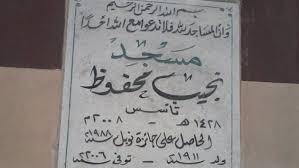 بسم الله الرحمن الرحيم
وأن المساجد لله فلا تدعوا مع الله أحدا
مسجد
نجيب محفوظ
تأسس
١٤٢٨ هـ - ٢٠٠٨ م
الحاصل على جائزة نوبل سنة ١٩٨٨
ولد ١٩١١ توفى ٢٠٠٦